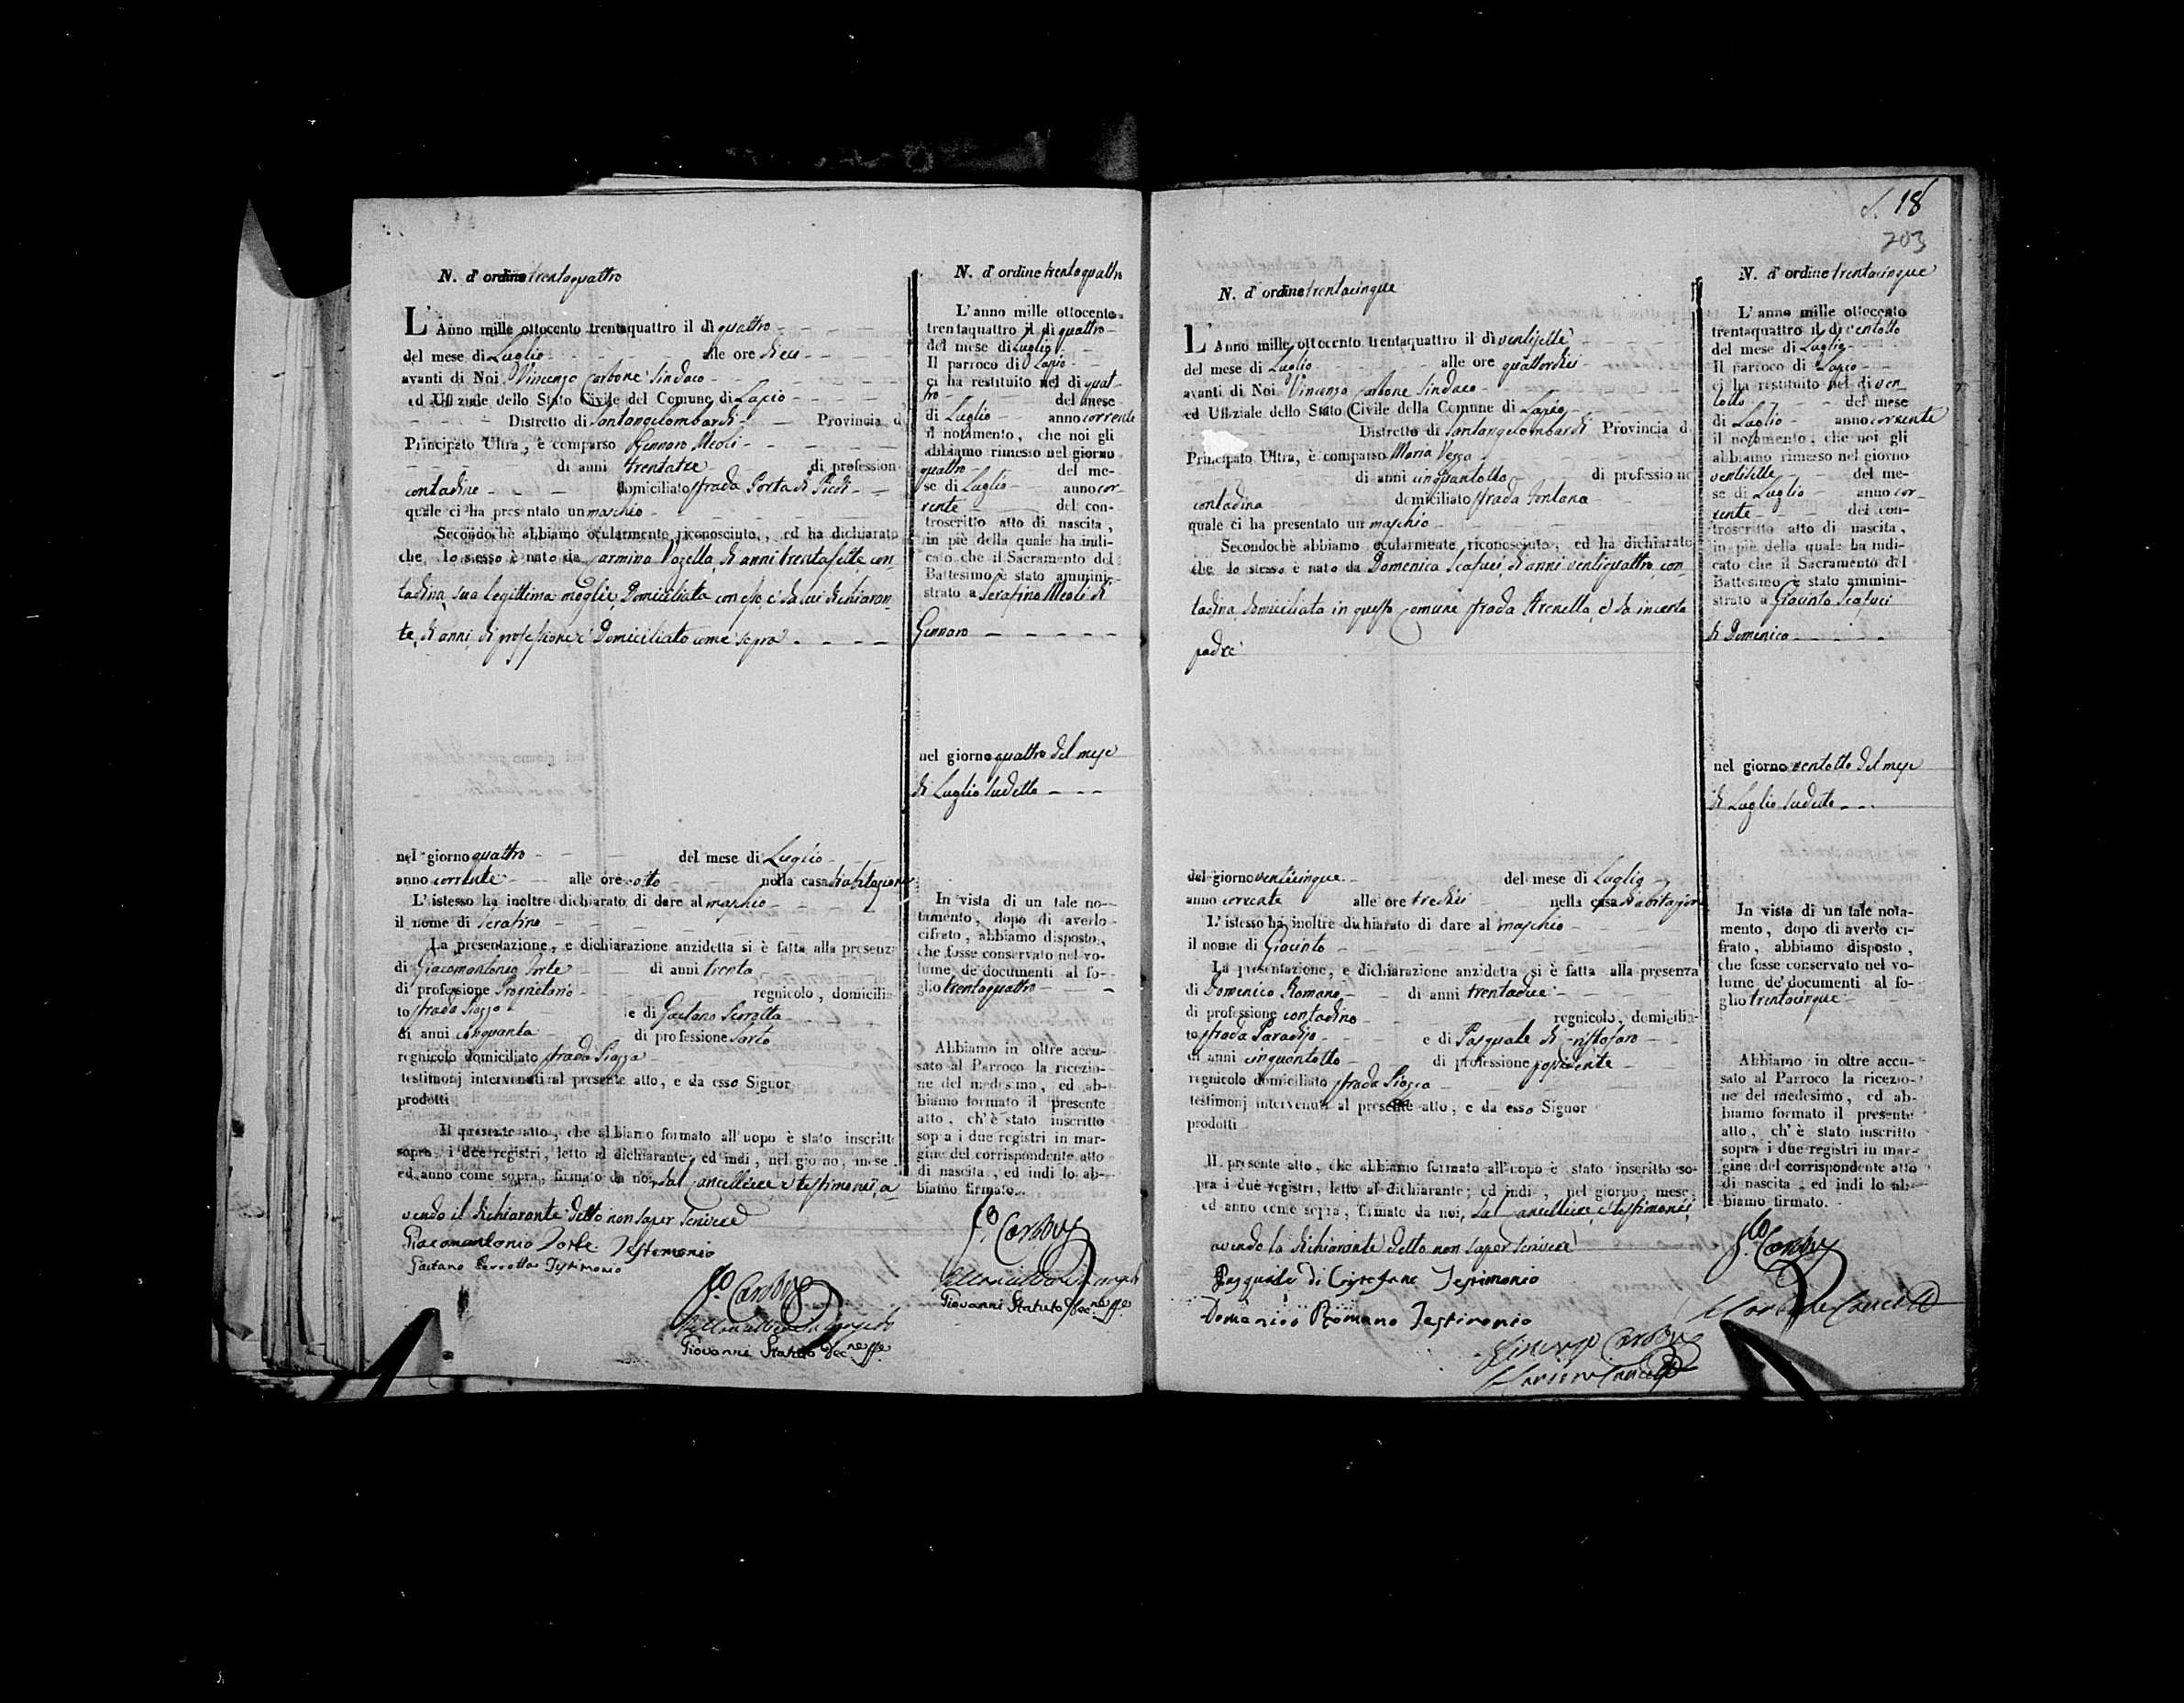 N. d'ordine trentaquattro
L'Anno mille ottocento trentaquattro il dì quattro
del mese di Luglio alle ore dieci
avanti di Noi Vincenzo Carbone Sindaco
ed Uffiziale dello Stato Civile del Comune di Lapio
Distretto di Santangelombardi Provincia d
Principato Ultra, è comparso Gennaro Meoli
di anni trentatre di profession
contadino domiciliato strada Porta di Piedi
quale ci ha presentato un maschio
Secondochè abbiamo ocularmente riconosciuto, ed ha dichiarato
che lo stesso è nato da Carmina Vozella di anni trentasette con
tadina, sua legittima moglie, Domiciliata con esso, e da lui dichiaran
te, di anni, di professione e Domiciliato come sopra
nel giorno quattro del mese di Luglio
anno corrente alle ore otto nella casa di abitazione
L'istesso ha inoltre dichiarato di dare al maschio
il nome di Serafino
La presentazione, e dichiarazione anzidetta si è fatta alla presenz
di Giacomantonio Forte di anni trenta
di professione Proprietario regnicolo, domicilia
to strada Piazza e di Gaetano Perrotta
di anni cinquanta di professione Sarto
regnicolo domiciliato strada Piazza
testimonj intervenuti al presente atto, e da esso Signor
prodotti
Il presente atto, che abbiamo formato all'uopo è stato inscritto
sopra i due registri, letto al dichiarante, ed indi, nel giorno, mese
ed anno come sopra, firmato da noi, dal Cancelliere e testimonii, a
vendo il dichiarante detto non saper scrivere
Giacomantonio Forte Testimonio
Gaetano Perrotta Testimonio
Carbone
Giovanni Statuto
N. d'ordine trentaquattro
L'anno mille ottocento
trentaquattro il di quattro
del mese di Luglio
Il parroco di Lapio
ci ha restituito nel di quat
tro del mese
di Luglio anno corrente
il notamento, che noi gli
abbiamo rimesso nel giorno
quattro del me-
se di Luglio anno cor
rente del con-
troscritto atto di nascita,
in piè della quale ha indi-
cato che il Sacramento del
Battesimo è stato ammini-
strato a Serafino Meoli di
Gennaro
nel giorno quattro del mese
di Luglio sudetto
In vista di un tale no-
tamento, dopo di averlo
cifrato, abbiamo disposto,
che fosse conservato nel vo-
lume de' documenti al fo-
glio trentaquattro
Abbiamo in oltre accu-
sato al Parroco la ricezio-
ne del medesimo, ed ab-
biamo formato il presente
atto, ch'è stato inscritto
sopra i due registri in mar-
gine del corrispondente atto
di nascita, ed indi lo ab-
biamo firmato.
Carbone
Giovanni Statuto
18
203
N. d'ordine trentacinque
L'Anno mille ottocento trentaquattro il dì ventisette
del mese di Luglio alle ore quattordici
avanti di Noi Vincenzo Carbone Sindaco
ed Uffiziale dello Stato Civile della Comune di Lapio
Distretto di Santangelombardi Provincia d
Principato Ultra, è comparso Maria Vessa
di anni cinquantotto di professione
contadina domiciliato strada Fontana
quale ci ha presentato un maschio
Secondochè abbiamo ocularmente riconosciuto, ed ha dichiarato
che lo stesso è nato da Domenica Scafuci, di anni ventiquattro, con
tadina domiciliata in questo Comune strada Arenella, e da incerto
padre
del giorno venticinque del mese di Luglio
anno corrente alle ore tredici nella casa di abitazione
L'istesso ha inoltre dichiarato di dare al maschio
il nome di Giacinto
La presentazione, e dichiarazione anzidetta si è fatta alla presenza
di Domenico Romano di anni trentadue
di professione contadino regnicolo, domicilia-
to strada Paradiso e di Pasquale di Cristofaro
di anni cinquantotto di professione possidente
regnicolo domiciliato strada Piazza
testimonj intervenuti al presente atto, e da esso Signor
prodotti
Il presente atto, che abbiamo formato all'uopo è stato inscritto so-
pra i due registri, letto al dichiarante; ed indi, nel giorno, mese,
ed anno come sopra, firmato da noi, dal Cancelliere, e testimonii,
avendo la dichiarante detto non saper scrivere
Pasquale di Cristofano Testimonio
Domenico Romano Testimonio
Vincenzo Carbone
N. d'ordine trentacinque
L'anno mille ottocento
trentaquattro il di ventotto
del mese di Luglio
Il parroco di Lapio
ci ha restituito nel di ven
totto del mese
di Luglio anno corrente
il notamento, che noi gli
abbiamo rimesso nel giorno
ventisette del me-
se di Luglio anno cor-
rente del con-
troscritto atto di nascita,
in piè della quale ha indi-
cato che il Sacramento del
Battesimo è stato ammini-
strato a Giacinto Scafuci
di Domenica
nel giorno ventotto del mese
di Luglio sudetto
In vista di un tale nota-
mento, dopo di averlo ci-
frato, abbiamo disposto,
che fosse conservato nel vo-
lume de' documenti al fo-
glio trentacinque
Abbiamo in oltre accu-
sato al Parroco la ricezio-
ne del medesimo, ed ab-
biamo formato il presente
atto, ch'è stato inscritto
sopra i due registri in mar-
gine del corrispondente atto
di nascita, ed indi lo ab-
biamo firmato.
Carbone